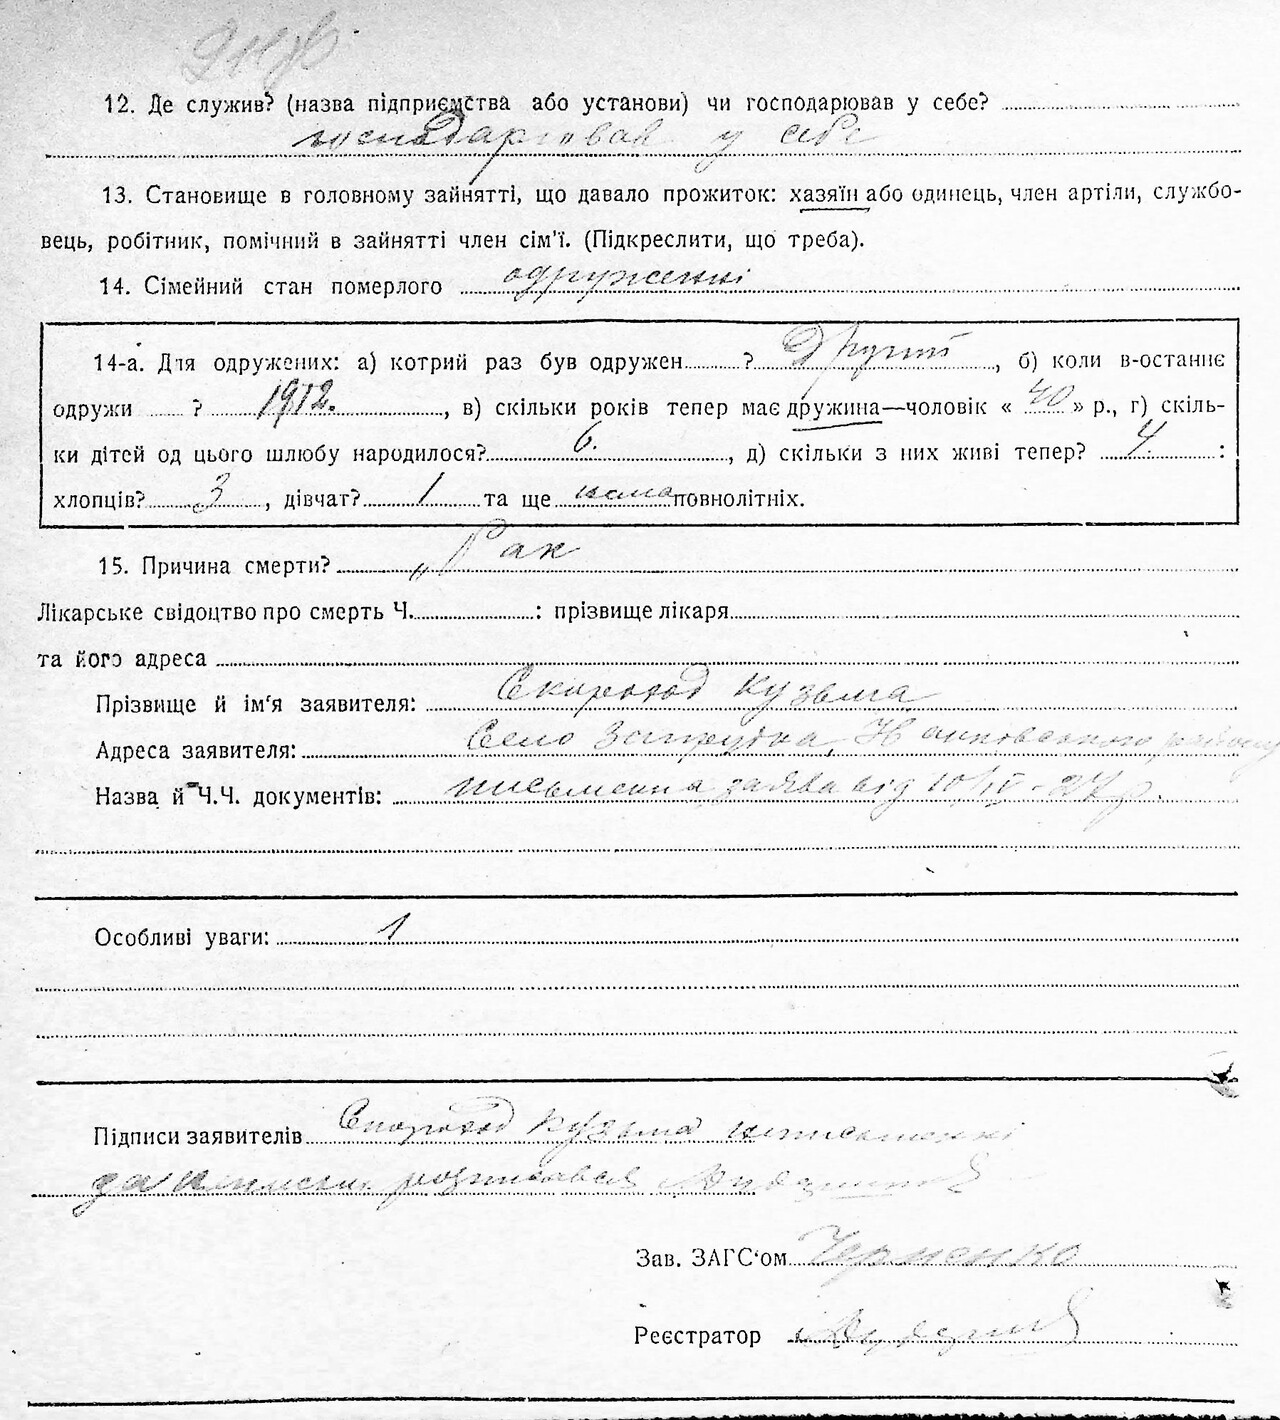 12. Де служив? (назва підприємства або установи) чи господарював у себе?
господарював у себе
13. Становище в головному зайнятті, що давало прожиток: хазяїн або одинець, член артіли, службо-
вець, робітник, помічний в зайнятті член сім'ї. (Підкреслити, що треба).
14. Сімейний стан померлого одруженні
14-а. Для одружених: а) котрий раз був одружен ? Другий, б) коли в-останнє
одружи ? 1912., в) скільки років тепер має дружина—чоловік « 40 » р., г) скіль-
ки дітей од цього шлюбу народилося? 6., д) скільки з них живі тепер? 4. :
хлопців? 3, дівчат? 1 та ще нема повнолітніх.
15. Причина смерти? „Рак
Лікарське свідоцтво про смерть Ч. : прізвище лікаря
та його адреса
Прізвище й ім'я заявителя: Скороход Кузьма
Адреса заявителя: Село району
Назва й Ч.Ч. документів: письменна заява від 10/IV - 27 р.
Особливі уваги: 1
Підписи заявителів Скороход Кузьма неписьменні
розписався
Зав. ЗАГС'ом Черненко
Реєстратор